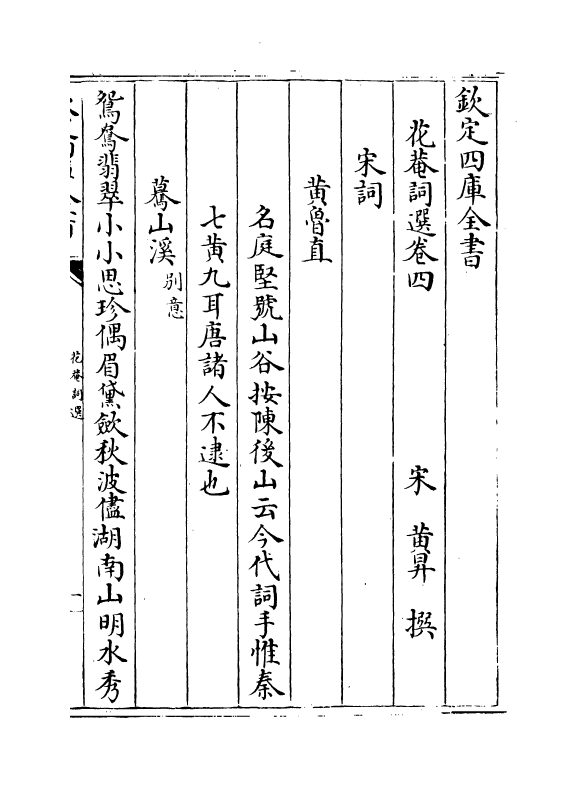 欽定四庫全書
花菴詞選卷四
宋 黄昇 撰
宋詞
黄魯直
名庭堅號山谷按陳後山云今代詞手惟秦
七黄九耳唐諸人不逮也
驀山溪別意
鴛鴦翡翠小小思珍偶眉黛斂秋波儘湖南山明水秀
花菴詞選
一